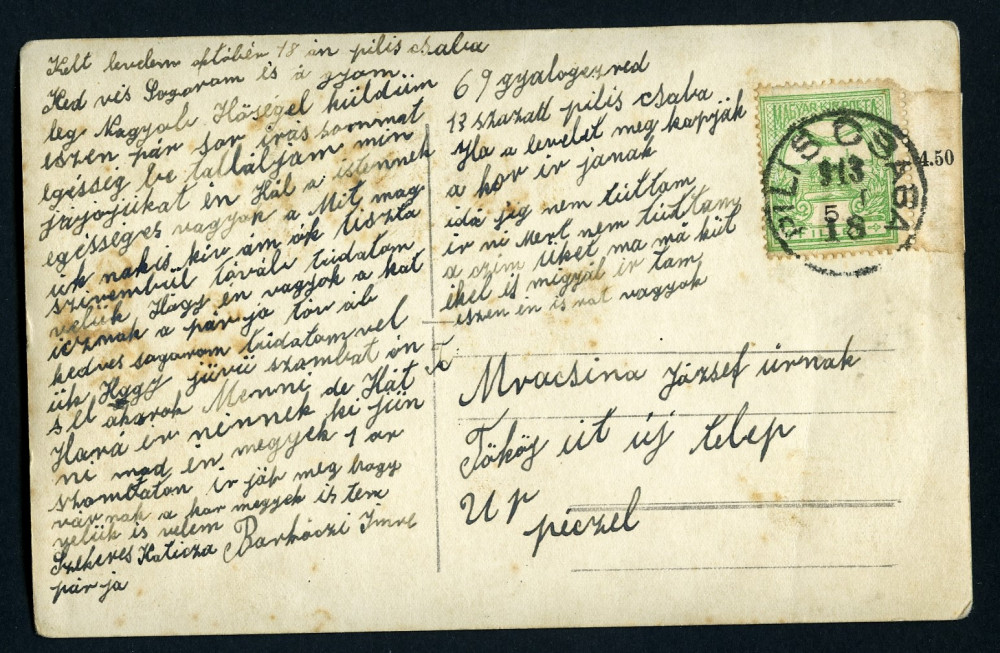 Kelt levelem október 18 án pilis csaba
Ked ves Sogorom és a gyom
leg Nagyobb Hőségel küldüm
eszen pár sor írás sommat
egésség be talláljam min
jzájojukat én Hál a istennek
egésséges vagyok a Mit mag
uk nakis kív ám ok tiszta
szívembül továbá tudatom
velük Hogy én vagyok a kat
icznak a pár ja tov ab
kedves sogorom tudatom vel
ük Hogy jüvü szombat ón
el akarok Menni de Hát
Hará ér nennek ki jün
ni mad én megyek 1 or
szombaton ír ják meg hogy
vár nak a kor megyek is tem
velük is velem
Szekeres Katicza Barkóczi Imre
pár ja
69 gyalogezred
13 szazatt pilis csaba
Ha a levelet meg kapják
a kor ír janak
idá jig nem túttam
ír ni Mert nem túttam
a czím üket ma má küt
ékel is mégyal ír tam
iszen én is rat vagyok
MAGYAR KIR. POSTA
FILLÉR
PILIS CSABA
913
5
18
4.50
Mracsina József úrnak
Tököj út új telep
U p
péczel